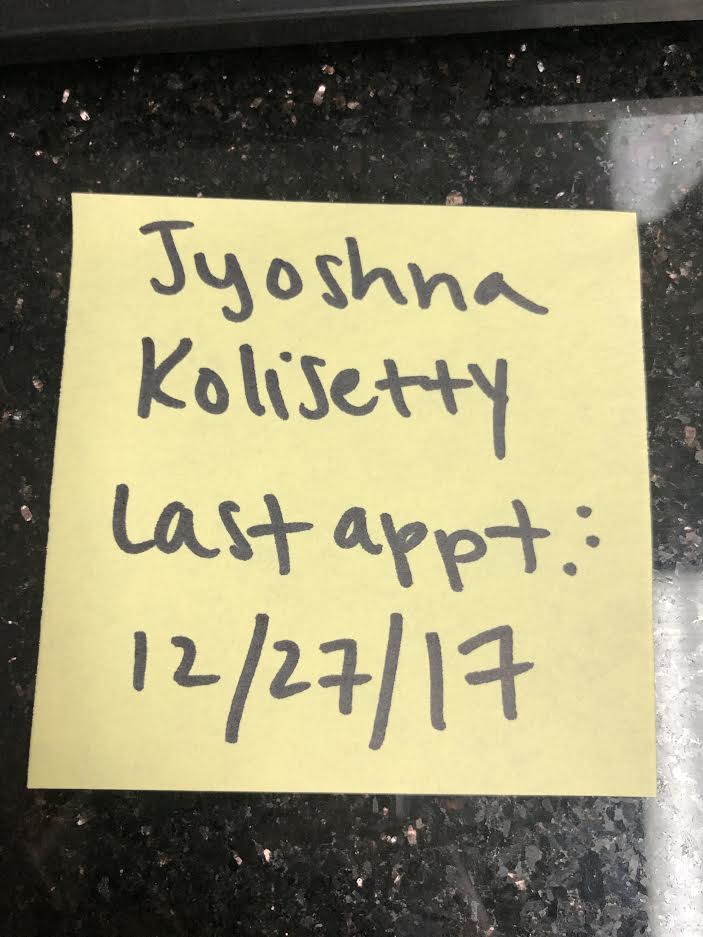 Jyoshna
Kolisetty
Last appt.:
12/27/17